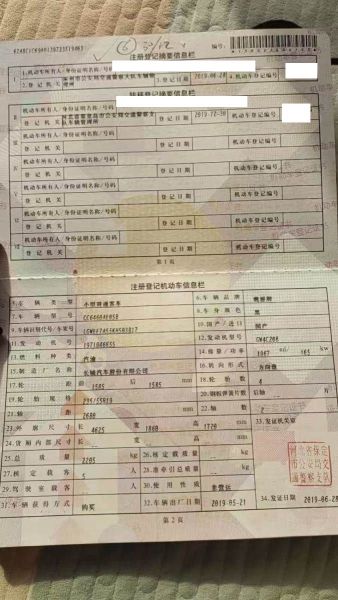 编号:
注册登记摘要信息栏
1.机动车所有人/身份证明名称/号码
2.登记机关 3.登记日期 2019-06-28 4.机动车登记编号
转移登记摘要信息栏
机动车所有人/身份证明名称/号码
登记机关 登记日期 2019-12-30 机动车登记编号
机动车所有人/身份证明名称/号码
登记机关 登记日期 机动车登记编号
机动车所有人/身份证明名称/号码
登记机关 登记日期 机动车登记编号
机动车所有人/身份证明名称/号码
登记机关 登记日期 机动车登记编号
机动车所有人/身份证明名称/号码
登记机关 登记日期 机动车登记编号
机动车所有人/身份证明名称/号码
登记机关 登记日期 机动车登记编号
第1页
注册登记机动车信息栏
5.车辆类型 小型普通客车 6.车辆品牌
7.车辆型号 8.车身颜色 黑
9.车辆识别代号/车架号 10.国产/进口 国产
11.发动机号 12.发动机型号 GW4C20B
13.燃料种类 汽油 14.排量/功率 1967 ml/ 165 kw
15.制造厂名称 长城汽车股份有限公司 16.转向形式 方向盘
17.轮距 前 1585 后 1585 mm 18.轮胎数 4
19.轮胎规格 235/55R19 20.钢板弹簧片数 后轴 片
21.轴距 2680 mm 22.轴数 2
23.外廓尺寸 长 4625 宽 1860 高 1720 mm 33.发证机关章
24.货厢内部尺寸 长 宽 高 mm
25.总质量 2205 kg 26.核定载质量 kg
27.核定载客 5 人 28.准牵引总质量 kg
29.驾驶室载客 人 30.使用性质 非营运
31.车辆获得方式 购买 32.车辆出厂日期 2019-05-21 34.发证日期 2019-06-28
第2页